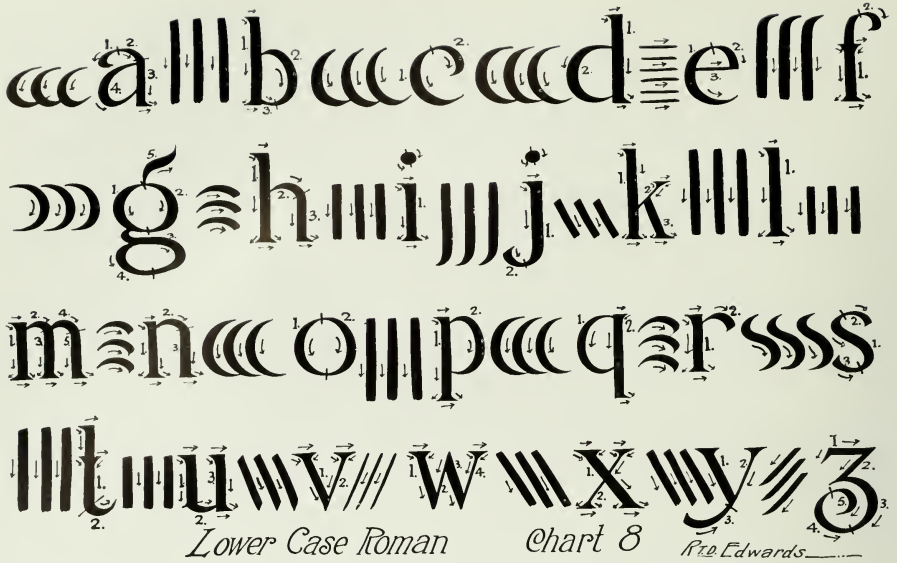 a b c d e f
g h i j k l
m n o p q r s
t u v w x y z
Lower Case Roman Chart 8 Edwards